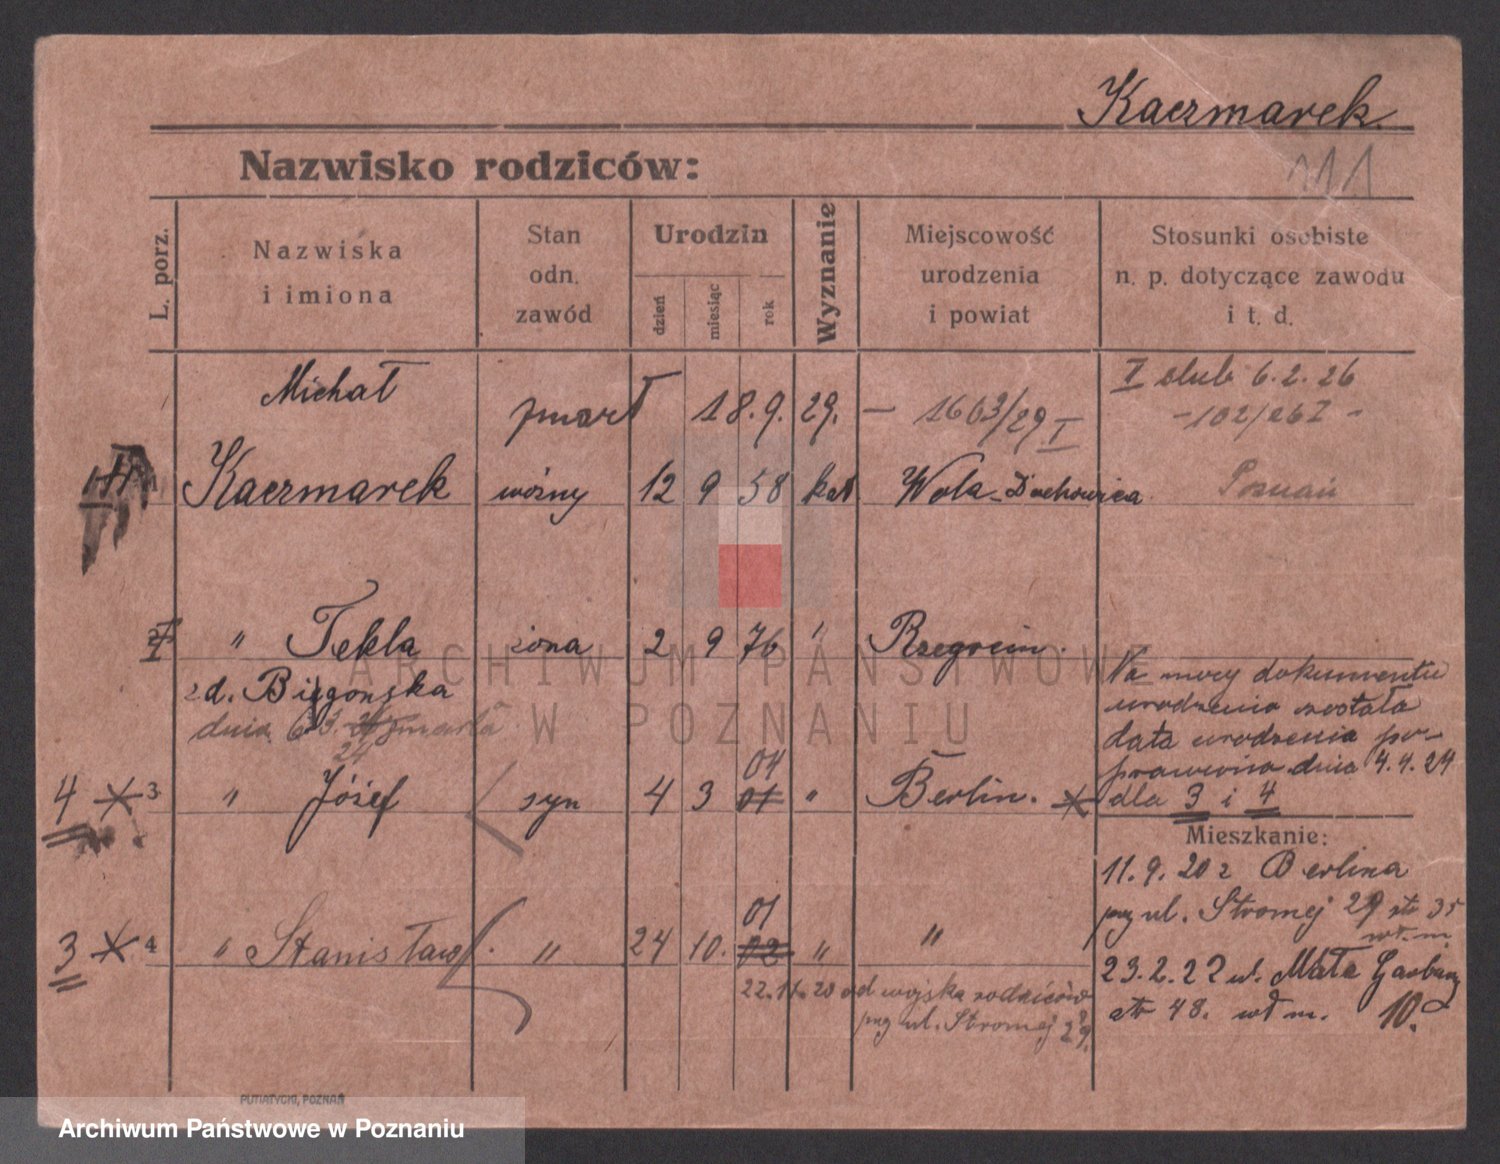 Kaczmarek
Nazwisko rodziców:
111
L. porz.
Nazwiska
i imiona
Stan
odn.
zawód
Urodzin
dzień
miesiąc
rok
Wyznanie
Miejscowość
urodzenia
i powiat
Stosunki osobiste
n. p. dotyczące zawodu
i t. d.
Michał
zmarł 18.9.29. — 1603/29 I
I slub 6.2.26
-102/26 I -
Kaczmarek woźny 12 9 58 kat Wola-Duchowica Poznań
" Tekla żona 2 9 76 " Rzegocin.
zd.
dnia 6 3. zmarła
24
Na mocy dokumentu
urodzenia została
data urodzenia po-
prawiona dnia 4.4.24
dla 3 i 4
04
4 3 " Józef syn 4 3 01 " Berlin.
Mieszkanie:
11.9.20 z Berlina
przy ul. Stromej 29 str 35
wł. m.
01
3 4 " Stanisław " 24 10. 02 " "
22.11.20 od wojska rodziców
przy ul. Stromej 29.
23.2.22 ul. Mała Garbary
str 48. wł m. 10.
PUTIATYCKI, POZNAŃ
ARCHIWUM PAŃSTWOWE
W POZNANIU
Archiwum Państwowe w Poznaniu